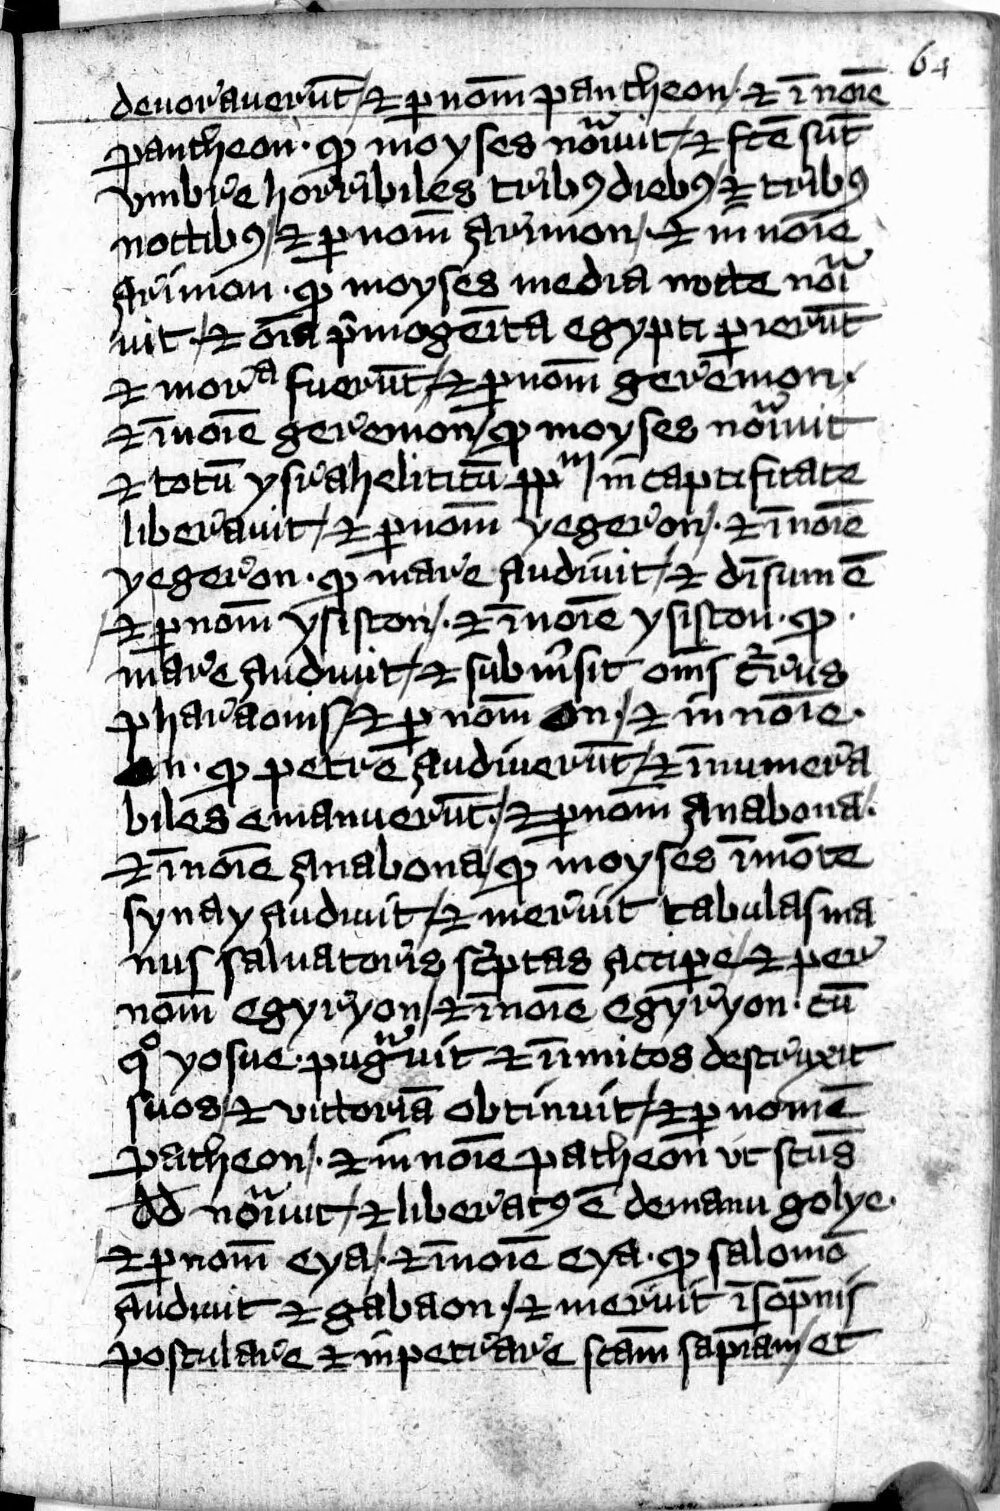 64
deuorauerūt / ⁊ ꝑ nom̄ pantheon / · ⁊ ī noīe
pantheon · ꝙ moyses noīauit / ⁊ fc̄e sūt
vmbre horribiles tribꝰ diebꝰ / ⁊ tribꝰ
noctibꝰ / ⁊ ꝑ nom̄ arimon / · ⁊ in noīe
arimon · ꝙ moyses media nocte noīa
uit · / ⁊ oīa p̄mogeīta egypti ꝑierūt
⁊ morᵃ fuerūt / ⁊ ꝑ nom̄ geremon ·
⁊ ī noīe geremon / ꝙ moyses noīauit
⁊ totū ysraheliticū ppᵐ in captifitate
liberauit / ⁊ ꝑ nom̄ yegeron / · ⁊ ī noīe
yegeron · ꝙ mare audiuit / ⁊ diīsum ē
⁊ ꝑ nom̄ ysiston / · ⁊ ī noīe ysiston · ꝙ ·
mare audiuit / ⁊ subm̄sit om̄s c̄rrus
pharaonis / ⁊ ꝑ nom̄ on · / ⁊ in noīe ·
on · ꝙ petre audiuerūt / ⁊ īnumera
biles emanuerūt · / ⁊ ꝑ nom̄ anabona / ·
⁊ ī noīe anabona / ꝙ moyses ī mōte
synay audiuit / ⁊ meruit tabulas ma
nus saluatoris sc̄ptas accipe / ⁊ per
nom̄ egyryon / ⁊ ī noīe egyryon · cū
qͦ yosue · pugͣuit ⁊ inīmicos destruxit
suos / ⁊ victoriā obtinuit / ⁊ ꝑ nomē
patheon / · ⁊ in noīe patheon vt sctūs
dd noīauit / ⁊ liberatꝰ ē de manu golye ·
⁊ ꝑ nom̄ eya / · ⁊ ī noīe eya · ꝙ salomō
audiuit ⁊ gabaon · / ⁊ meruit ī sop̄nis
postulare ⁊ inpetrare scām sap̄iam / et